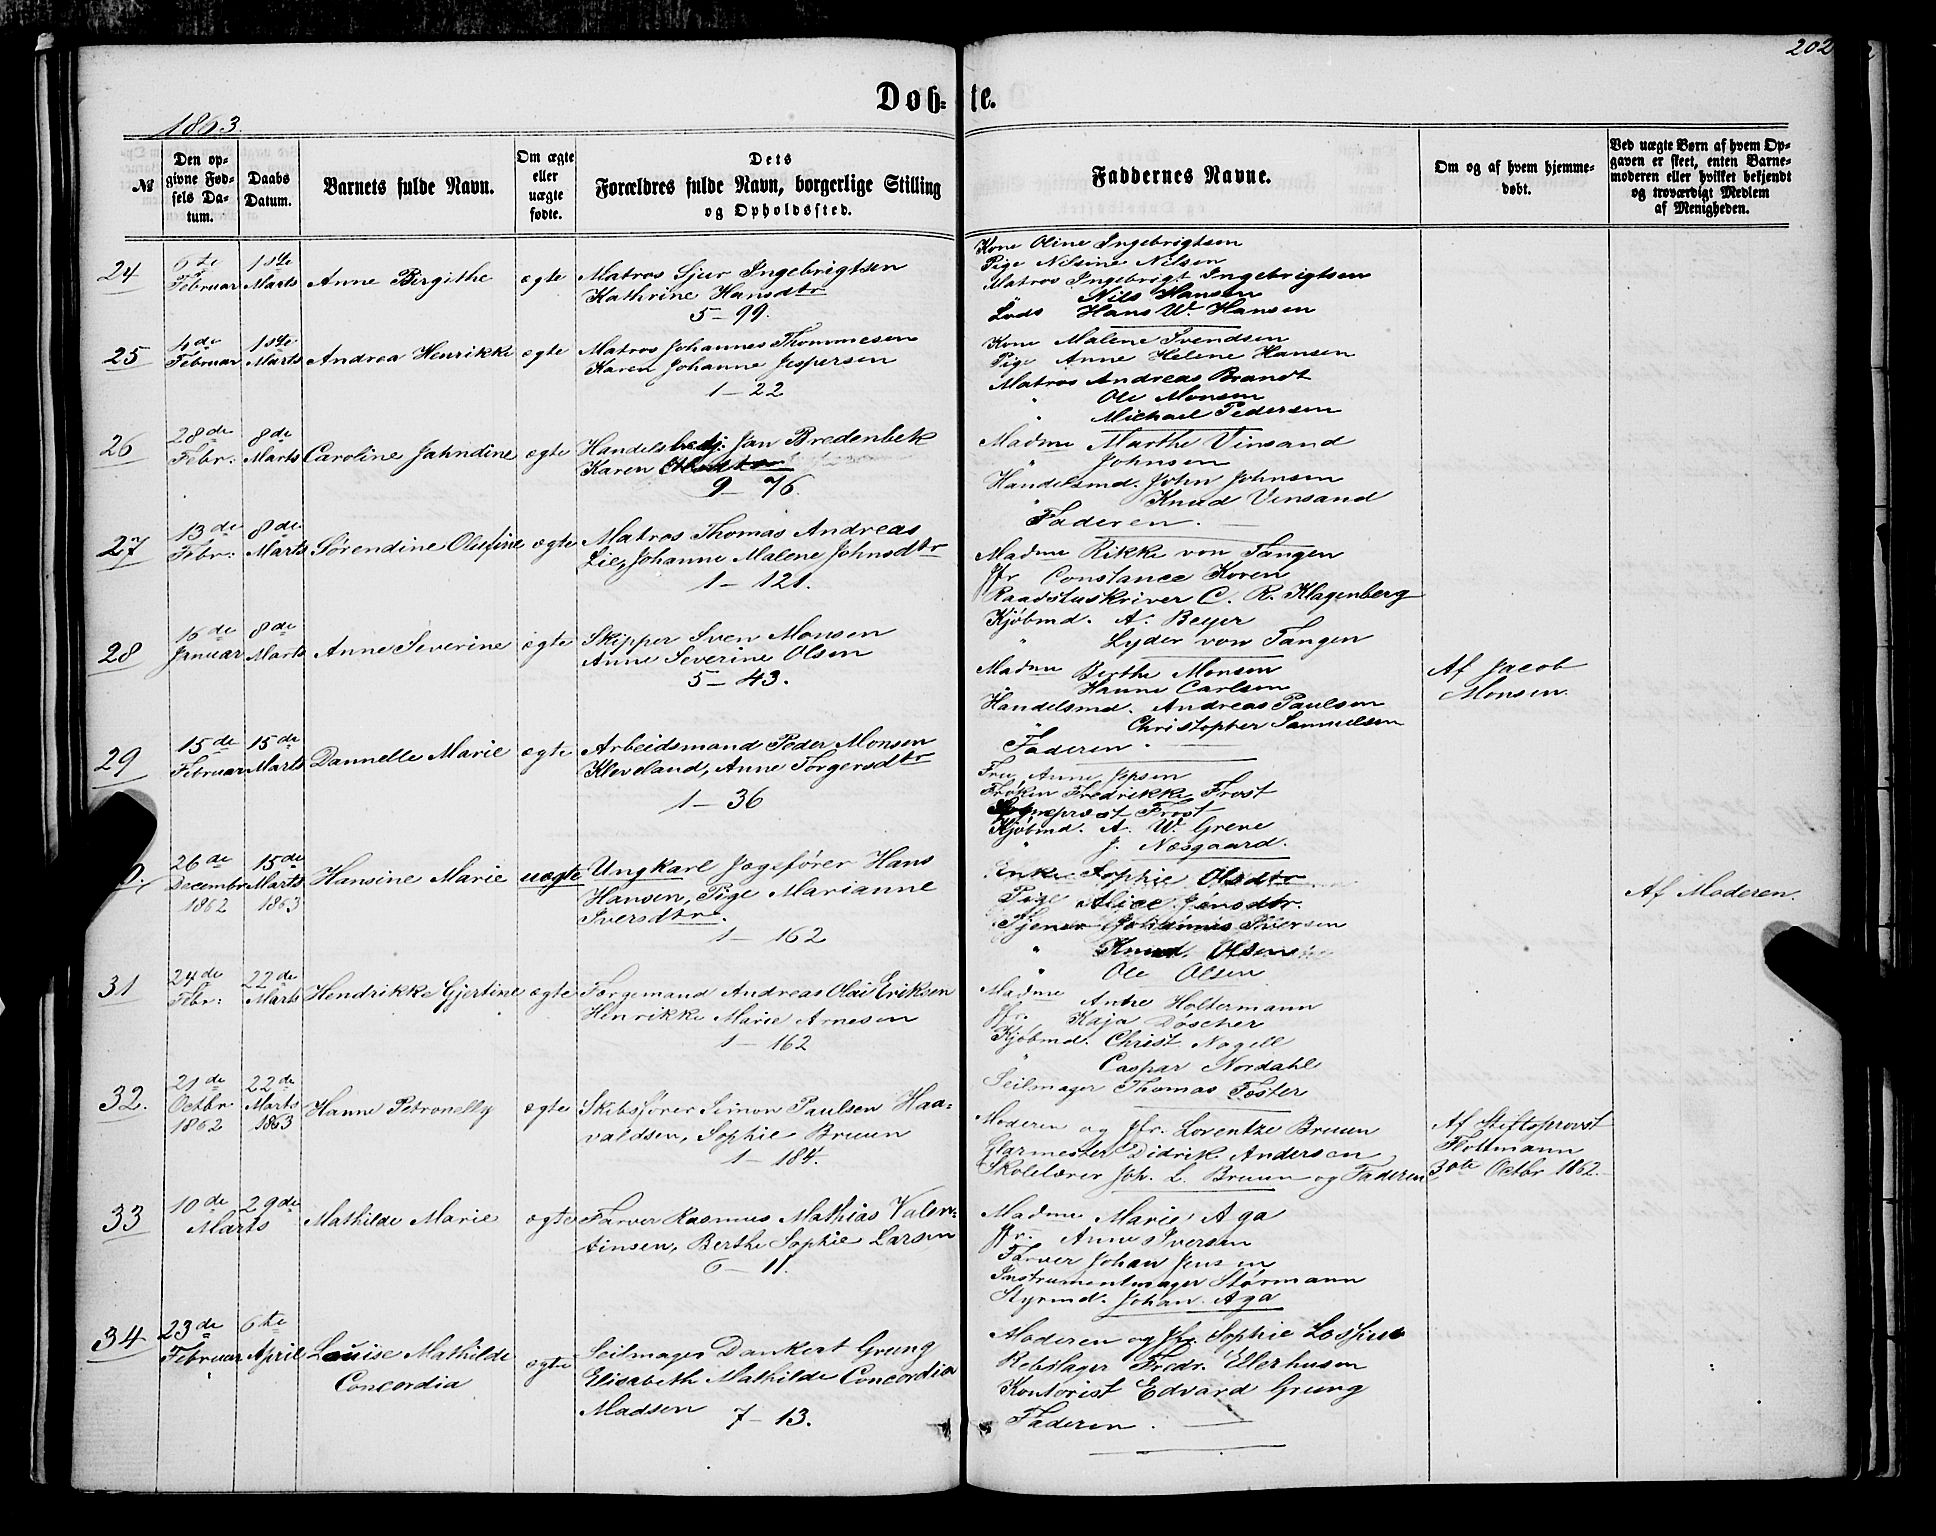 202
Døb-te.
1863.
№
Den opgivne Fødsels Datum.
Daabs Datum.
Barnets fulde Navn.
Om ægte eller uægte fødte.
Dets Forældres fulde Navn, borgerlige Stilling og Opholdssted.
Faddernes Navne.
Om og af hvem hjemmedøbt.
Ved uægte Børn af hvem Opgaven er skeet, enten Barnemoderen eller hvilket bekjendt og troværdigt Medlem af Menigheden.
24
6te Februar
1ste Marts
Anne Birgithe
ægte
Matros Sjur Ingebrigtsen
Kathrine Hansdtr
5-99.
Kone Oline Ingebrigtsen
Pige Nilsine Nilsen
Matros Ingebrigt Ingebrigtsen
Nils Hansen
Lods Hans W. Hansen
25
4de Februar
1ste Marts
Andrea Henrikke
ægte
Matros Johannes Thommesen
Karen Johanne Jespersen
1-22
Kone Malene Svendsen
Pige Anne Helene Hansen
Matros Andreas Brandt
" Ole Monsen
" Michael Pedersen
26
28de Febr:
8de Marts
Caroline Jahndine
ægte
Handelsbetj. Jan Bredenbek
Karen
9-76.
Madme Marthe Vinsand
" Johnsen
Handelsmd. John Johnsen
" Knud Vinsand
Faderen.
27
13de Febr:
8de Marts
Sørendine Olufine
ægte
Matros Thomas Andreas
Lie, Johanne Malene Johnsdtr
1-121.
Madme Rikke von Tangen
Jfr Constance Koren
Raadstuskriver C. R. Klagenberg
Kjøbmd. A. Beyer
" Lyder von Tangen
28
16de Januar
8de Marts
Anne Severine
ægte
Skipper Sven Monsen
Anne Severine Olsen
5-43.
Madme Berthe Monsen
" Hanne Carlsen
Handelsmd. Andreas Paulsen
" Christopher Samuelsen
Faderen.
Af Jacob
Monsen.
29
15de Februar
15de Marts
Dannelle Marie
ægte
Arbeidsmand Peder Monsen
Kleveland, Anne Torgersdtr
1-36
Fru Anne Jopsen
Frøken Fredrikke Frost
Sognepræst Frost
Kjøbmd. A. W. Grene
" J. Næsgaard.
26de Decembr 1862
15de Marts 1863
Hansine Marie
uægte
Ungkarl Jogefører Hans
Hansen, Pige Marianne
Iversdtr.
1-162
Enke Sophie Olsdtr
Pige Alice Jensdtr.
Tjener Johannes Iversen
" Knud Olsen
" Ole Olsen
Af Moderen.
31
24de Febr:
22de Marts
Hendrikke Gjertine
ægte
Forgemand Andreas Olai Eriksen
Henrikke Marie Arnesen
1-162
Madme Anne Holtermann
Jfr. Kaja Döscher
Kjøbmd. Christ Nagell
" Caspar Nordahl
Seilmager Thomas Foster
32.
21de Octbr 1862
22de Marts 1863
Hanne Petronelly
ægte
Skibsfører Simon Paulsen Haa-
valdsen, Sophie Bruun
1-184.
Moderen og Jfr. Lorentze Bruun
Glarmester Didrik Andersen
Skolelærer Joh. L. Bruun og Faderen
Af Stiftsprovst
Flottmann
30te Octbr 1862.
33
10de 29de
Marts
Mathilde Marie
ægte
Farver Rasmus Mathias Valen-
tinsen, Berthe Sophie Larsen
6-11.
Madme Marie Aga
Jfr. Anne Iversen
Farver Johan Jensen
Instrumentmager Störmann
Styrmd. Johan Aga
34
23de Februar
6te April
Louise Mathilde
Concordia
ægte
Seilmager Dankert Grung
Elisabeth Mathilde Concordia
Madsen 7-13.
Moderen og Jfr. Sophie
Rebslager Fredr. Ellerhusen
Kontorist Edvard Grung
Faderen.